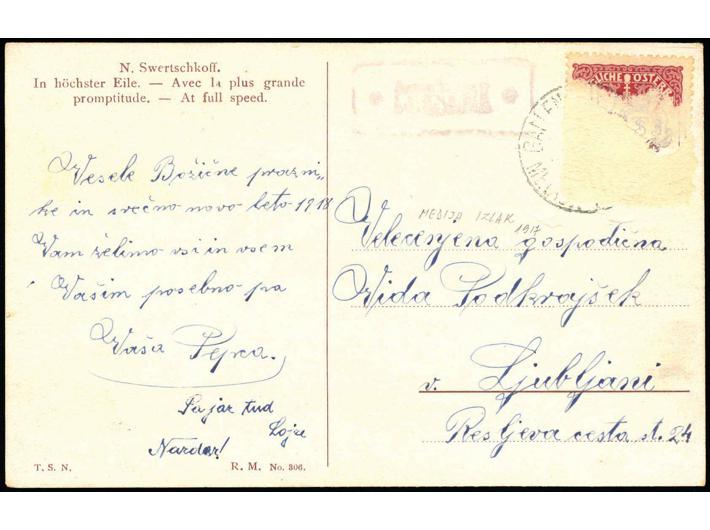 N. Swertschkoff.
In höchster Eile. — Avec la plus grande
promptitude. — At full speed.
Vesele Božične prazni„
ke in srečno novo leto 1918
Vam želimo vsi in vsem
Vašim posebno pa
Vaša Pepca.
tud
Lojze
Nardar!
T. S. N.
R. M. No. 306.
MEDIJA IZLAK
1917
Velecenjena gospodična
Vida Podkrajšek
v. Ljubljani
Resljeva cesta št. 24